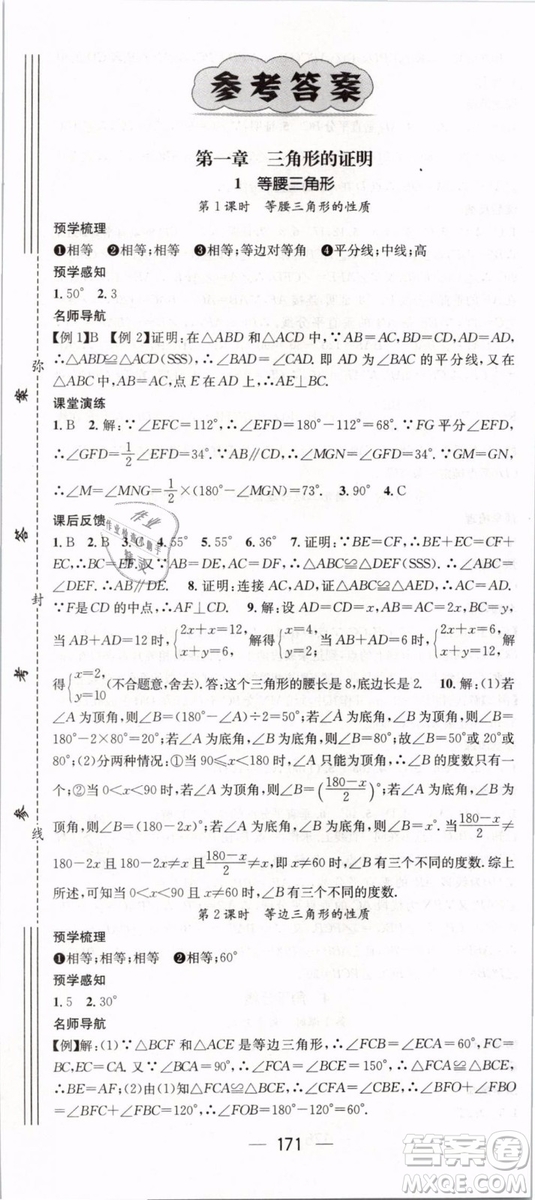 参考答案
第一章 三角形的证明
1 等腰三角形
第1课时 等腰三角形的性质
预学梳理
❶相等 ❷相等;相等 ❸相等;等边对等角 ❹平分线;中线;高
预学感知
1.50° 2.3
名师导航
【例1】B 【例2】证明:在△ABD和△ACD中,∵AB=AC,BD=CD,AD=AD,
∴△ABD≌△ACD(SSS).∴∠BAD=∠CAD.即AD为∠BAC的平分线,又∵在△ABC中,AB=AC,点E在BC上,∴AE⊥BC.
课堂演练
1.B 2.解:∵∠EFC=112°,∴∠EFD=180°-112°=68°.∵FG平分∠EFD,
∴∠GFD=1/2∠EFD=34°.∵AB∥CD,∴∠MGN=∠GFD=34°.∵GM=GN,
∴∠M=∠MNG=1/2×(180°-∠MGN)=73°. 3.90° 4.C
课后反馈
1.B 2.B 3.C 4.55° 5.55° 6.36° 7.证明:∵BE=CF,∴BE+EC=CF+EC,
∠DEF. 8.证明:连接AC,AD.
∵F是CD的中点,∴AF⊥CD. 9.解:设AD=DC=x,AB=2x,BC=y,
当AB+AD=12时,{2x+x=12, x+y=6, 解得{x=4, y=2;当AB+AD=6时,{2x+x=6, x+y=12, 解
得{x=2, y=10(不合题意,舍去).答:这个三角形的腰长是8,底边长是2. 10.解:(1)若
∠A为顶角,则∠B=(180°-∠A)÷2=50°;若∠A为底角,∠B为顶角,则∠B=
180°-2×80°=20°;若∠A为底角,∠B为底角,则∠B=80°.故∠B=50°或20°或
80°;(2)分两种情况:①当90≤x<180时,∠A只能为顶角,∴∠B的度数只有一个;
②当0<x<90时,若∠A为顶角,则∠B=((180-x)/2)°;若∠A为底角,∠B为
顶角,则∠B=(180-2x)°;若∠A为底角,∠B为底角,则∠B=x°.当(180-x)/2≠
180-2x且180-2x≠x且(180-x)/2≠x,即x≠60时,∠B有三个不同的度数.综上
所述,可知当0<x<90且x≠60时,∠B有三个不同的度数.
第2课时 等边三角形的性质
预学梳理
❶相等;相等;相等 ❷相等;60°
预学感知
1.5 2.30°
名师导航
【例】解:(1)∵△BCF和△ACE是等边三角形,∴AC=CE,
∴△CBE≌△CFA.
∴BE=AF;(2)由(1)知△CBE≌△CFA,∴∠CFA=∠CBE.
171
弥
封
线
参
考
答
案
作业
答案卷